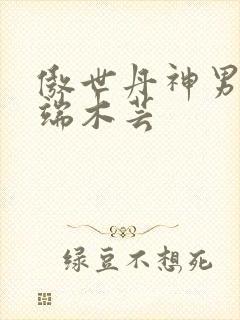 傲世丹神男
端木芸
绿豆不想死